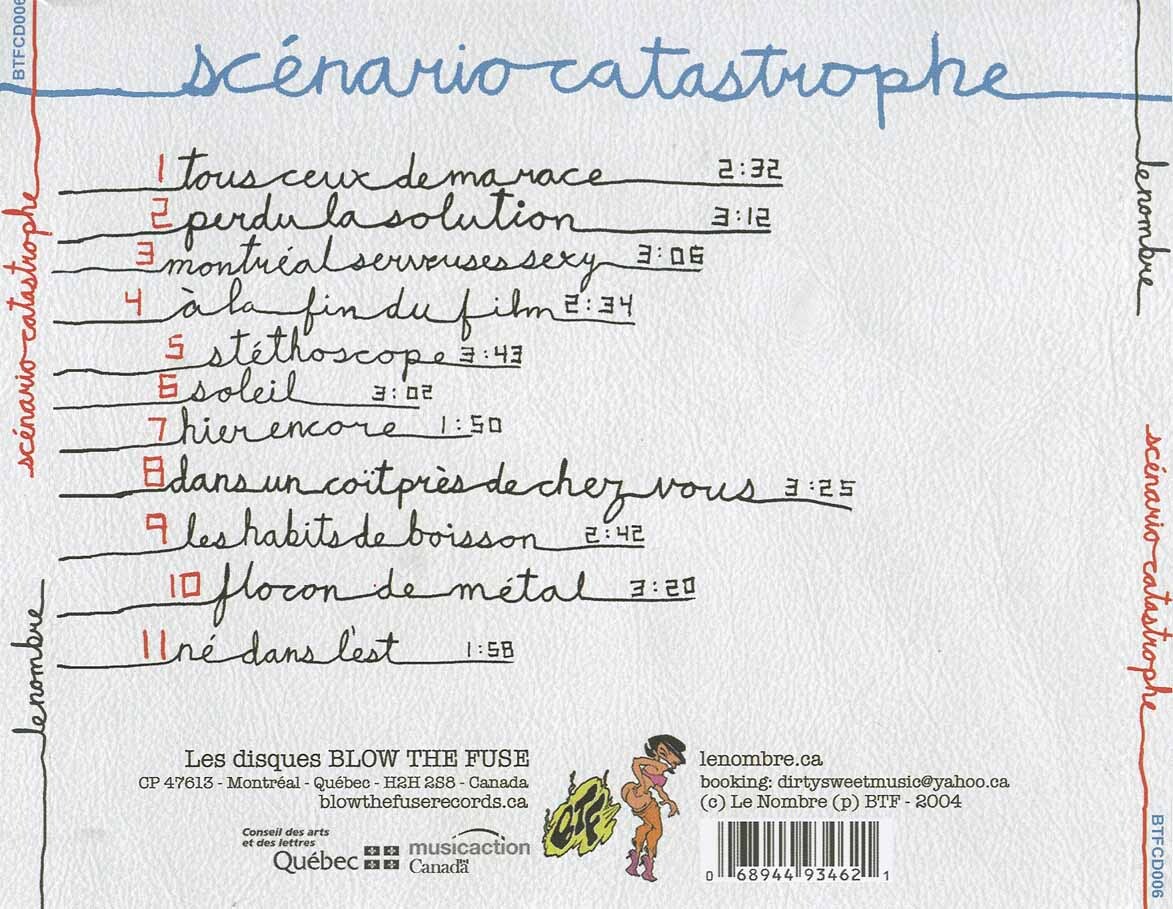 BTFCD006
scénario catastrophe
lenombre
scénario catastrophe
1 tous ceux de ma race 2:32
2 perdu la solution 3:12
3 montréal serveuses sexy 3:06
4 à la fin du film 2:34
5 stéthoscope 3:43
6 soleil 3:02
7 hier encore 1:50
8 dans un coït près de chez vous 3:25
9 les habits de boisson 2:42
10 flocon de métal 3:20
11 né dans l'est 1:58
lenombre
scénario catastrophe
Les disques BLOW THE FUSE
CP 47613 - Montréal - Québec - H2H 2S8 - Canada
blowthefuserecords.ca
Conseil des arts
et des lettres
Québec
musicaction
Canada
BTF
lenombre.ca
booking: dirtysweetmusic@yahoo.ca
(c) Le Nombre (p) BTF - 2004
0 68944 93462 1
BTFCD006